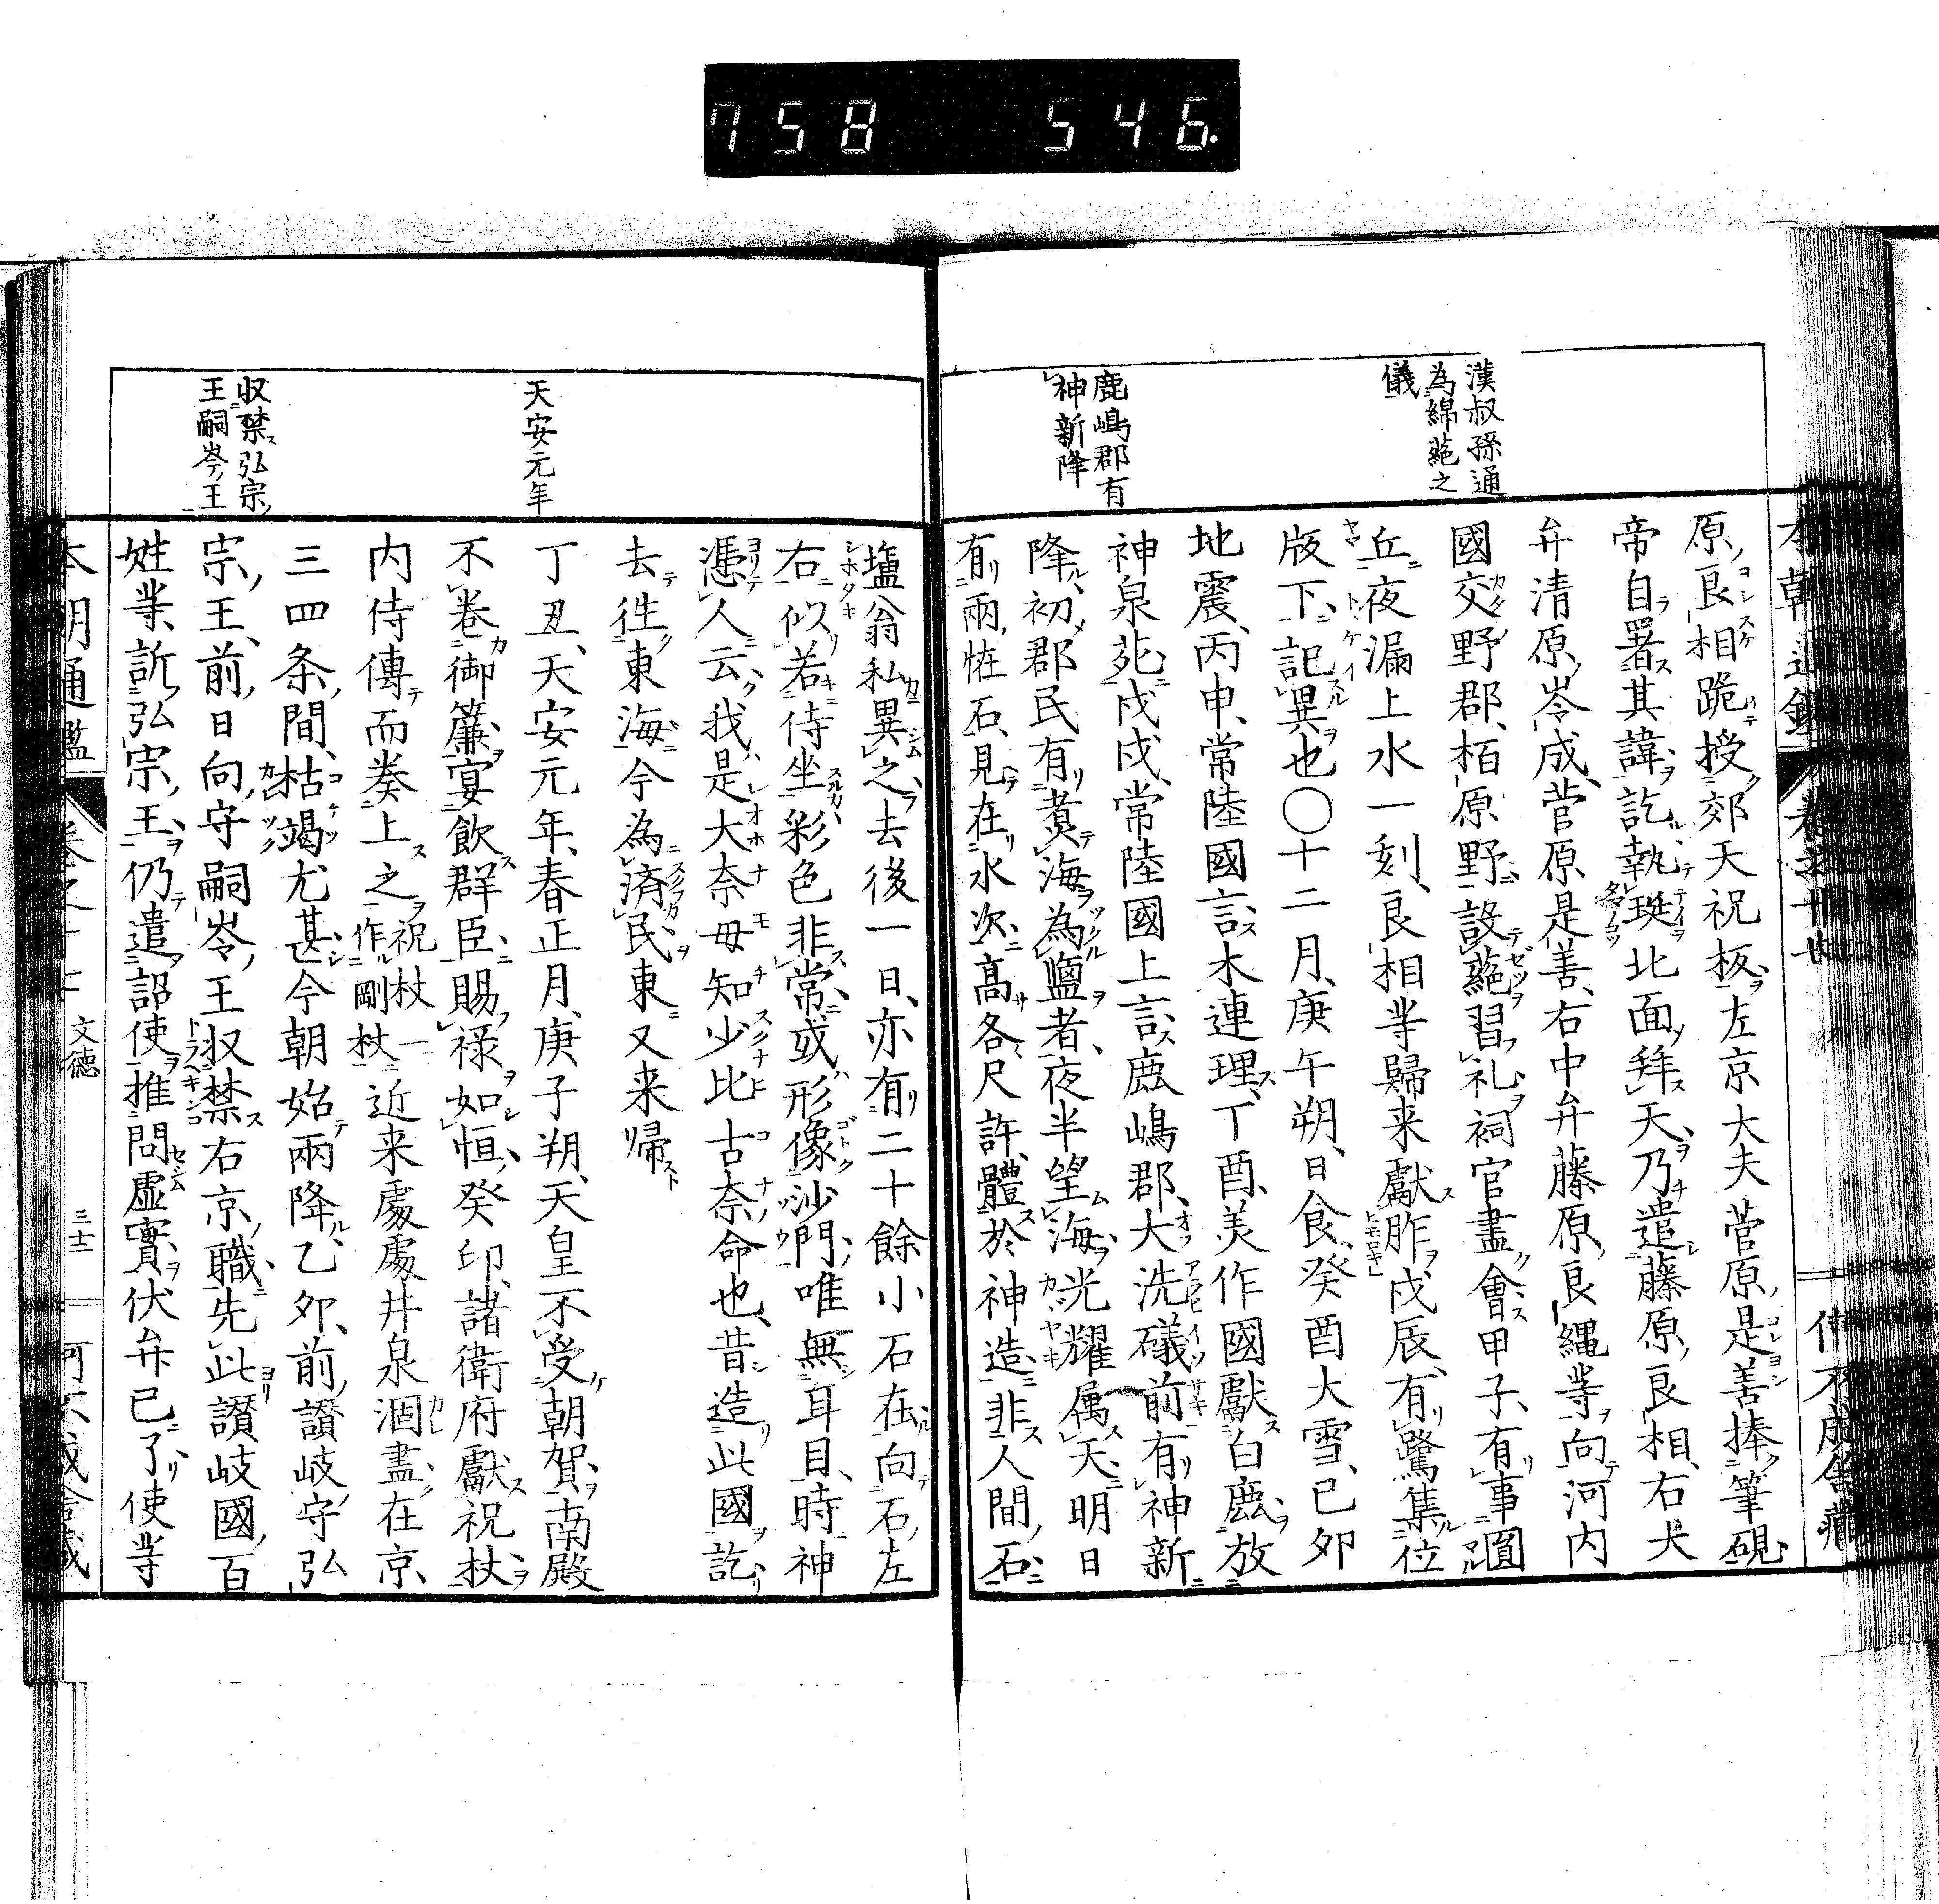 758 546.
漢叔孫通
為綿蕝之
儀
鹿嶋郡有
神新降
原良相跪授郊天祝板左京大夫菅原是善捧筆硯
帝自署其諱訖執珽北面拜天乃遣藤原良相右大
弁清原岑成菅原是善右中弁藤原良縄等向河内
國交野郡栢原野設蕝習礼祠官盡會甲子有事圓
丘夜漏上水一刻良相等歸来獻胙戊辰有鷺集位
版下記異也〇十二月庚午朔日食癸酉大雪己夘
地震丙申常陸國言木連理丁酉美作國獻白鹿放
神泉苑戊戌常陸國上言鹿嶋郡大洗礒前有神新
降初郡民有煑海為鹽者夜半望海光耀属天明日
有兩恠石見在水次高各尺許體於神造非人間石
天安元年
収禁弘宗
王嗣岑王
塩翁私異之去後一日亦有二十餘小石在向石左
右似若侍坐彩色非常或形像沙門唯無耳目時神
憑人云我是大奈母知少比古奈命也昔造此國訖
去徃東海今為済民東又来帰
丁丑天安元年春正月庚子朔天皇不受朝賀南殿
不卷御簾宴飲群臣賜禄如恒癸卯諸衛府獻祝杖
内侍傳而奏上之祝杖一作剛杖近来處處井泉涸盡在京
三四条間枯竭尤甚今朝始雨降乙夘前讃岐守弘
宗王前日向守嗣岑王収禁右京職先此讃岐國百
姓等訴弘宗王仍遣詔使推問虚實伏弁已了使等
文德
三十二